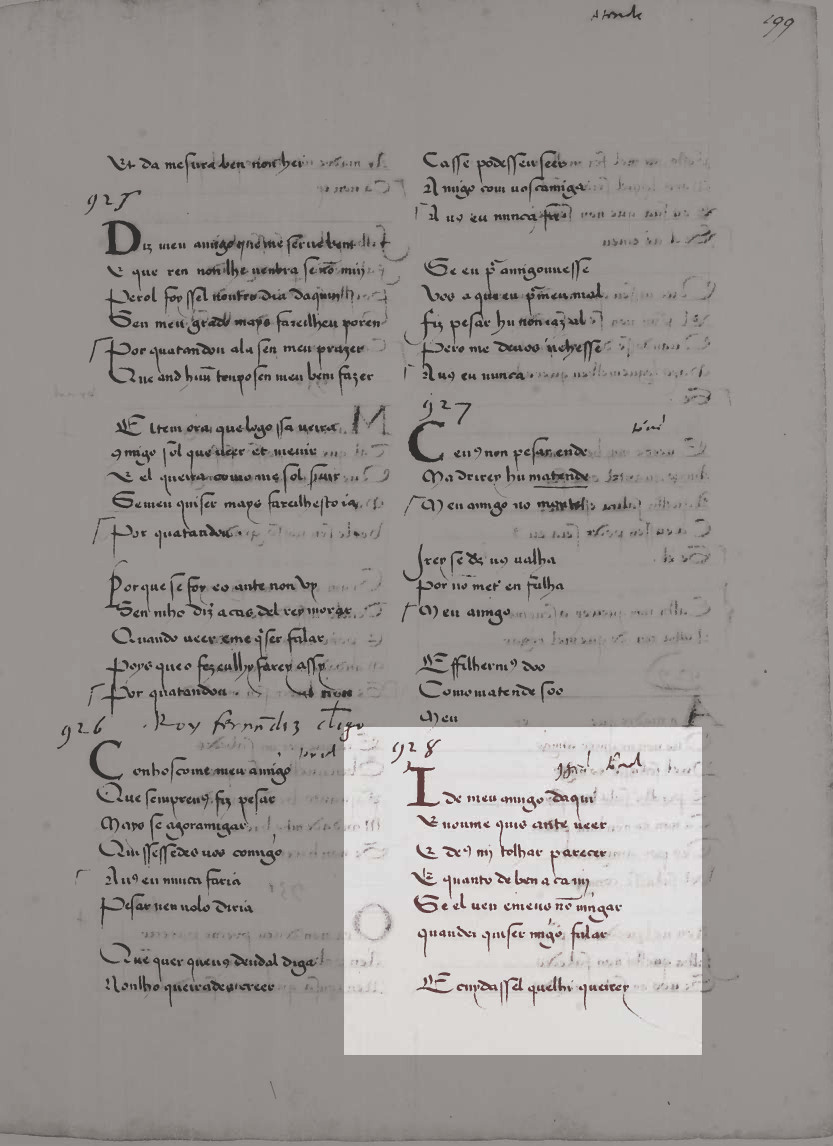 Et da mesura ben non hei
925
Diz meu amigo que me serue ben
E que ren non lhe nenbra se nō mī
Pero foyssel noutro dia daquī
Sen meu grado mays fareilheu poren
Por quatandou ala sen meu prazer
Que and huū tenpo sen meu ben fazer
El tem ora que logo ssa ueira
9migo sol que ueer et uenir
E el queira como me sol
Semeu quiser mays fareilhesto ia
Por quatandou
Porque se foy eo ante non uy
Sen mho diz a cas del rey morar
Quando ueer e me q̄ser falar
Poys que o fez eulhy farey assy
Por quatandou
926
Roy fernādiz cligo
Conhoscome meu amigo
Que sempreu9 fiz pesar
Mays se agoramigar
Quissessedes uos comigo
Au9 eu nunca faria
Pesar nen uolo diria
Que quer queu9 deu dal diga
Nonlho queirades creer
199
Casse podesseu seer
Amigo com uoscamiga
A uo eu nunca
Se eu p̄ amigouuesse
Vos a queu p̄ meu mal
Fiz pesar hu non iaz al
Pero me deuos uehesse
Au9 eu nunca
927
Ceu9 non pesar ende
Madrirey hu matende
Meu amigo no
Irey se d̄s uo ualha
Por nō met' en falha
Meu amigo
Effilherm9 doo
Como matende soo
Meu
928
I de meu amigo daqui
E noume quis ante ueer
E de9 mi tolhar parecer
E quanto de ben a ca mī
Se el uen emeu9 nō mīgar
quandei quiser migo falar
E cuydassel quelhi queirey